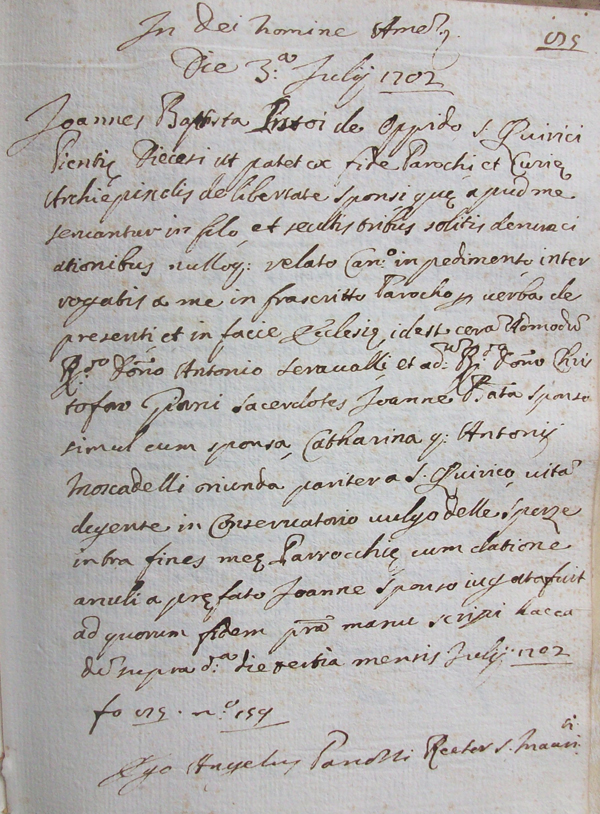 In dei nomine Amen.
Die 3.ª Julij 1702
Joannes Baptista de Oppido s. Quirici
Pientię Diecesi ut patet ex fide Parochi et Curię
Archiepisclis de libertate sponsi quę apud me
servantur in filo, et secutis tribus solitis denunci
ationibus nulloq: relato Can.º inpedimento inter
rogatis a me in frascritto Parocho p verba de
presenti et in facce Ecclesię idest cora Admodũ
R.do Dõno Antonio Seravalli, et ad.m R.do Dõno Chris
tofaro sacerdotes Joanne Bata sponso
simul cum sponsa, Catharina q: Antonij
Moscadelli oriunda pariter a s. Quirico, vita
degente in Conservatorio vulgo delle Sperze
intra fines meę Parrocchię cum datione
anuli a pręfato Joanne sponso iugata fuit
ad quorum fidem prã manu scripsi hacca
die supra d.ª die tertia mensis Julij 1702
fo n.º 159
Ego Angelus Rector s. Mauri